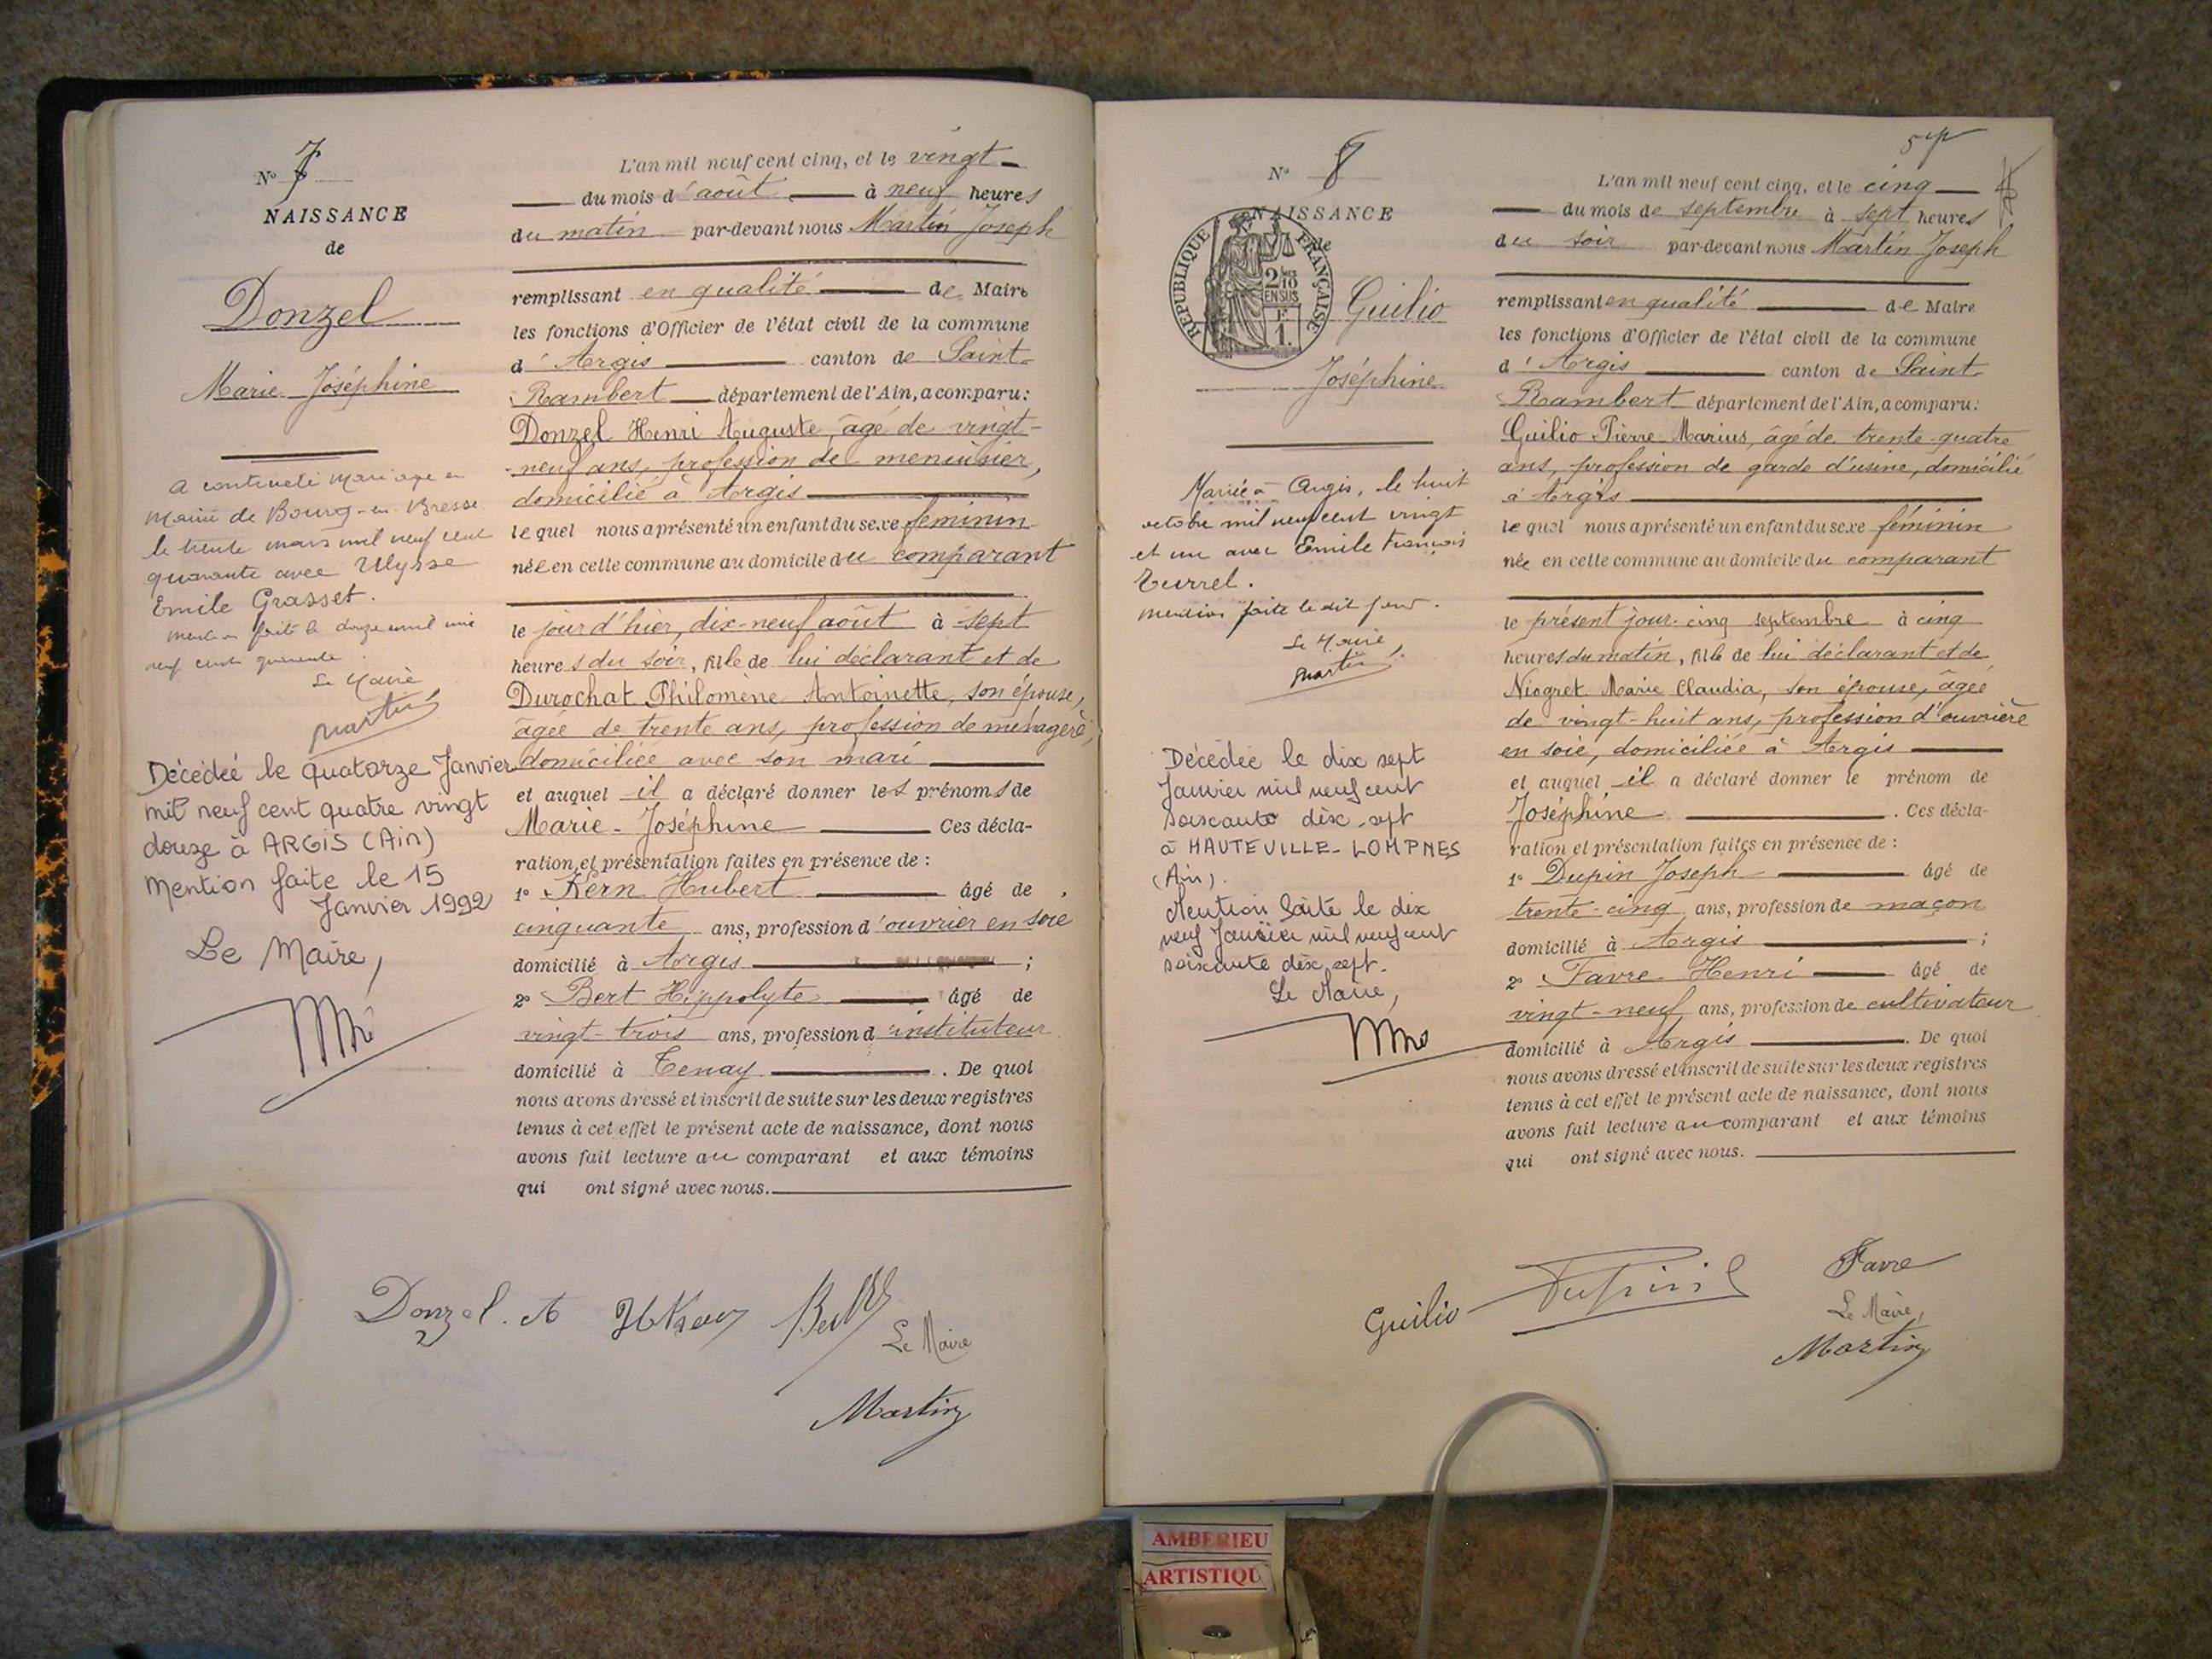 N° 7
NAISSANCE
de
Donzel
Marie Joséphine
a contracté mariage en
Mairie de Bourg-en-Bresse
le trente mars mil neuf cent
quarante avec Ulysse
Emile Grasset.
Mention faite le douze avril mil
neuf cent quarante.
Le Maire
Martin
Décédée le quatorze Janvier
mil neuf cent quatre vingt
douze à ARGIS (Ain)
Mention faite le 15
Janvier 1992
Le Maire,
L'an mil neuf cent cinq, et le vingt
du mois d'août à neuf heures
du matin par-devant nous Martin Joseph
remplissant en qualité de Maire
les fonctions d'Officier de l'état civil de la commune
d'Argis canton de Saint-
Rambert département de l'Ain, a comparu:
Donzel Henri Auguste, âgé de vingt-
neuf ans, profession de menuisier,
domicilié à Argis
lequel nous a présenté un enfant du sexe féminin
née en cette commune au domicile du comparant
le jour d'hier, dix-neuf août à sept
heures du soir, fille de lui déclarant et de
Durochat Philomène Antoinette, son épouse,
âgée de trente ans, profession de ménagère,
domiciliée avec son mari
et auquel il a déclaré donner les prénoms de
Marie-Joséphine Ces décla-
ration et présentation faites en présence de :
1° Kern Hubert âgé de
cinquante ans, profession d'ouvrier en soie
domicilié à Argis ;
2° Bert Hippolyte âgé de
vingt-trois ans, profession d'instituteur
domicilié à Tenay . De quoi
nous avons dressé et inscrit de suite sur les deux registres
tenus à cet effet le présent acte de naissance, dont nous
avons fait lecture au comparant et aux témoins
qui ont signé avec nous.
Donzel. A HKern Bert
Le Maire
Martin
57
N° 8
NAISSANCE
de
RÉPUBLIQUE FRANÇAISE
2/10
EN SUS
1.
Guilio
Joséphine
Mariée à Argis, le huit
octobre mil neuf cent vingt
et un avec Emile François
Turrel.
Mention faite ledit jour.
Le Maire,
Martin
Décédée le dix sept
Janvier mil neuf cent
soixante dix-sept
à HAUTEVILLE-LOMPNES
(Ain).
Mention faite le dix
neuf Janvier mil neuf cent
soixante dix sept.
Le Maire,
L'an mil neuf cent cinq, et le cinq
du mois de septembre à sept heures
du soir par-devant nous Martin Joseph
remplissant en qualité de Maire
les fonctions d'Officier de l'état civil de la commune
d'Argis canton de Saint-
Rambert département de l'Ain, a comparu:
Guilio Pierre Marius, âgé de trente-quatre
ans, profession de garde d'usine, domicilié
à Argis
lequel nous a présenté un enfant du sexe féminin
née en cette commune au domicile du comparant
le présent jour cinq septembre à cinq
heures du matin, fille de lui déclarant et de
Niogret Marie Claudia, son épouse, âgée
de vingt-huit ans, profession d'ouvrière
en soie, domiciliée à Argis
et auquel il a déclaré donner le prénom de
Joséphine . Ces décla-
ration et présentation faites en présence de :
1° Dupin Joseph âgé de
trente-cinq ans, profession de maçon
domicilié à Argis ;
2° Favre Henri âgé de
vingt-neuf ans, profession de cultivateur
domicilié à Argis . De quoi
nous avons dressé et inscrit de suite sur les deux registres
tenus à cet effet le présent acte de naissance, dont nous
avons fait lecture au comparant et aux témoins
qui ont signé avec nous.
Guilio Dupin Favre
Le Maire,
Martin
AMBERIEU
ARTISTIQU